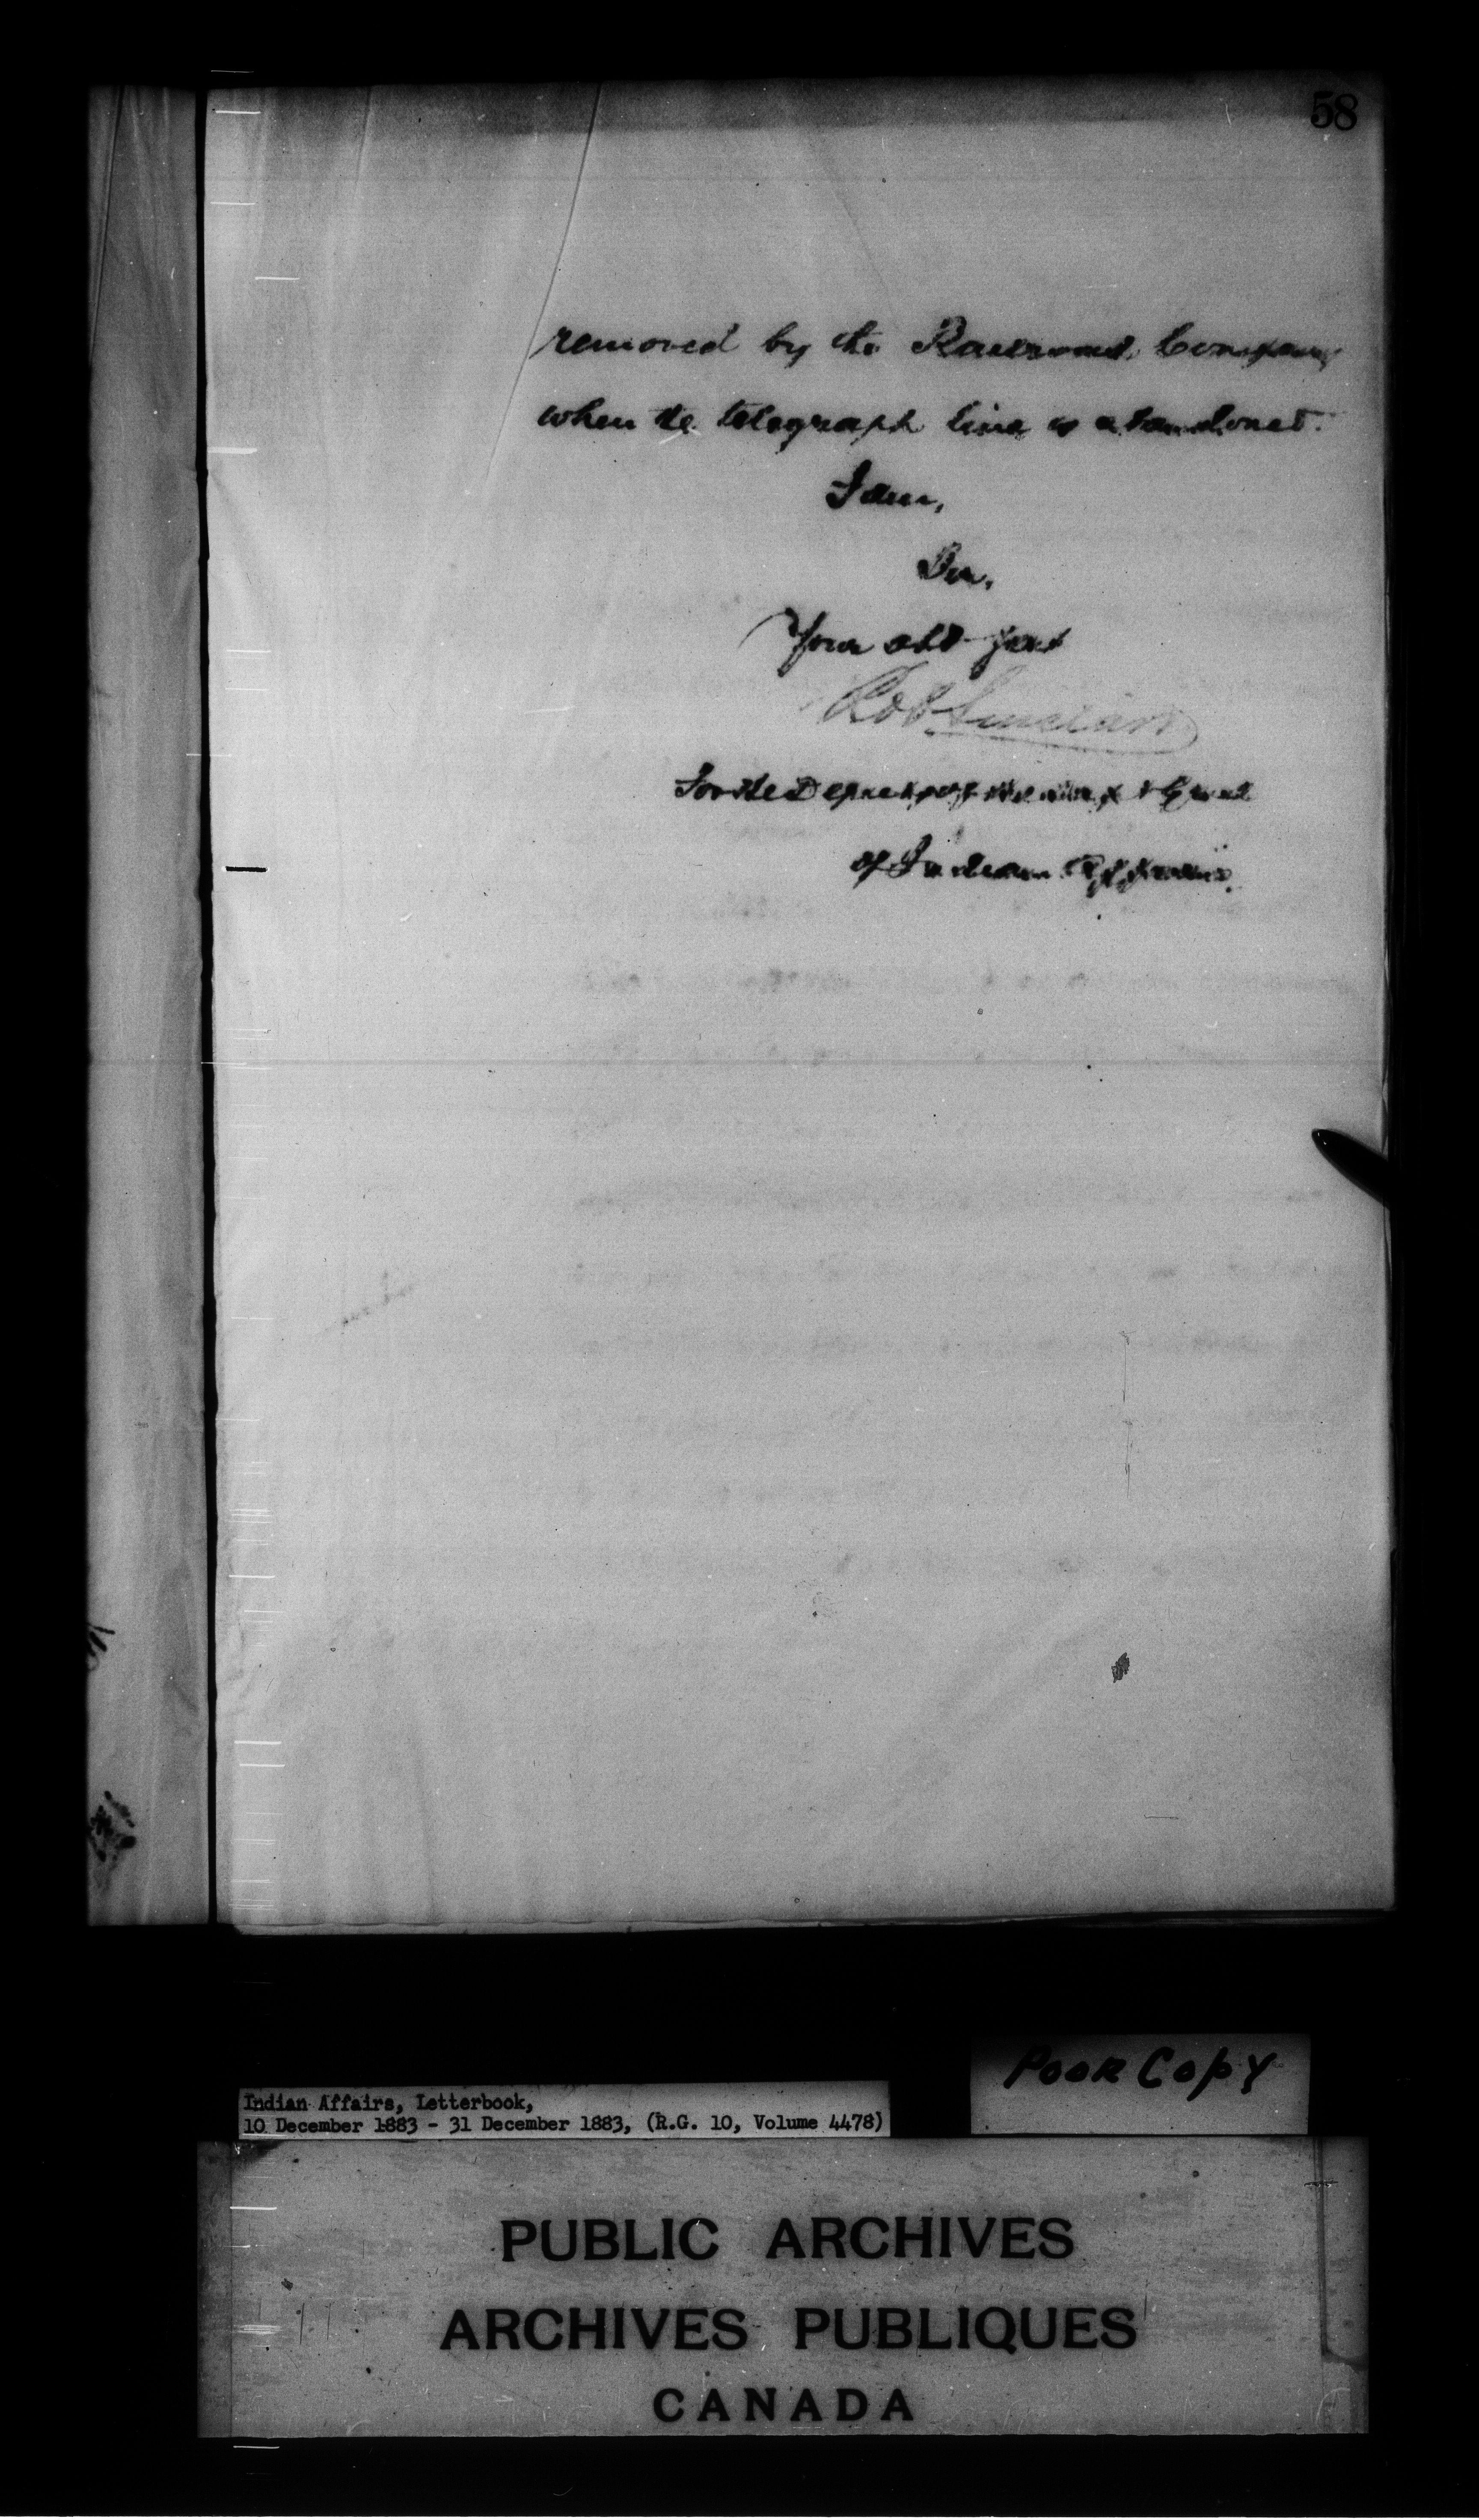 58
removed by the Railroad Company
when the telegraph line is abandoned.
I am,
Sir,
Your obt. servt
Rob Sinclair
For the Deputy of the &
of Indian Affairs.
Poor Copy
Indian Affairs, Letterbook,
10 December 1883 - 31 December 1883, (R.G. 10, Volume 4478)
PUBLIC ARCHIVES
ARCHIVES PUBLIQUES
CANADA